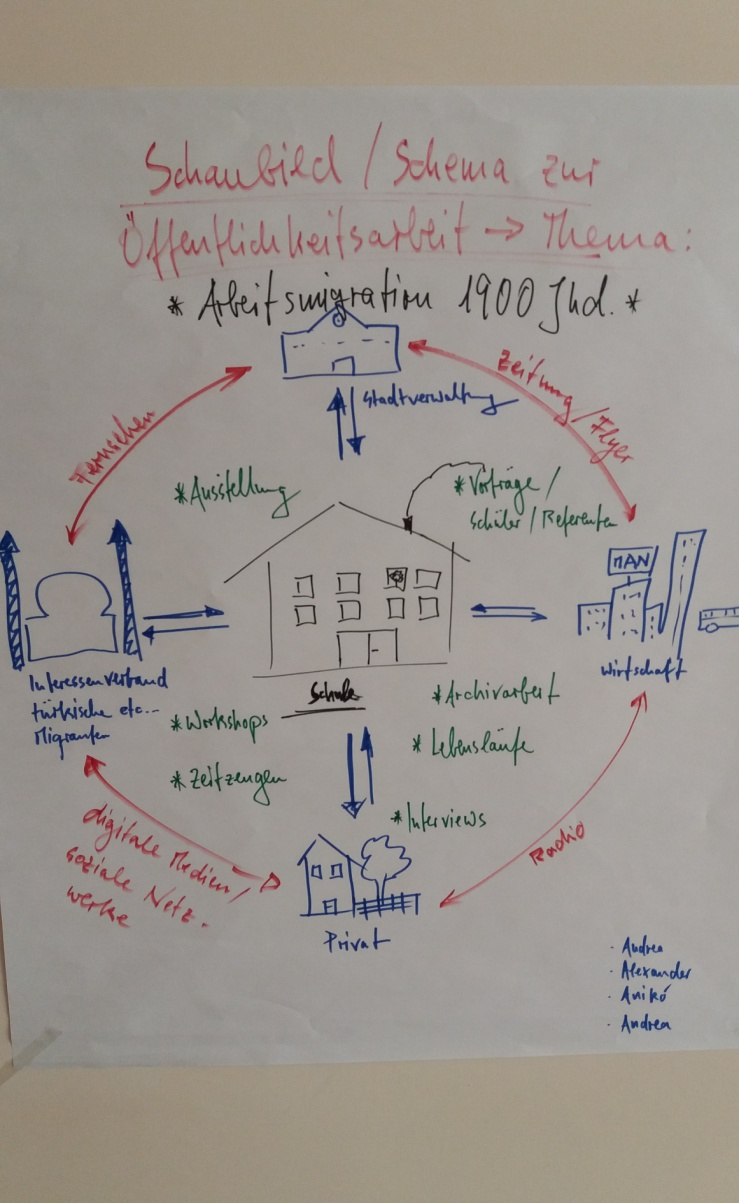 Schaubild / Schema zur
Öffentlichkeitsarbeit → Thema:
* Arbeitsmigration 1900 Jhd. *
Stadtverwaltung
Zeitung / Flyer
Fernsehen
* Ausstellung
* Vorträge /
Schüler / Referenten
MAN
Wirtschaft
Interessenverband
türkische etc...
Migranten
Schule
* Workshops
* Zeitzeugen
* Archivarbeit
* Lebensläufe
* Interviews
digitale Medien /
soziale Netz-
werke
Radio
Privat
· Andrea
· Alexander
· Anikó
· Andrea